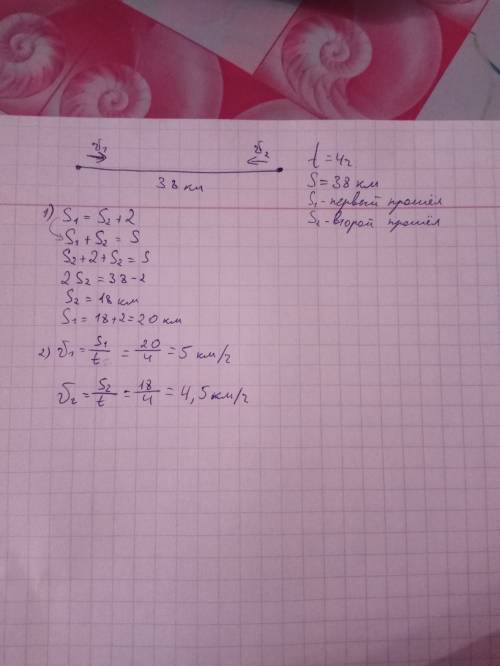 v₁ v₂
38 км
t = 4ч
S = 38 км
S₁ - первый прошёл
S₂ - второй прошёл
1) S₁ = S₂ + 2
S₁ + S₂ = S
S₂ + 2 + S₂ = S
2S₂ = 38 - 2
S₂ = 18 км
S₁ = 18 + 2 = 20 км
2) v₁ = S₁/t = 20/4 = 5 км/ч
v₂ = S₂/t = 18/4 = 4,5 км/ч